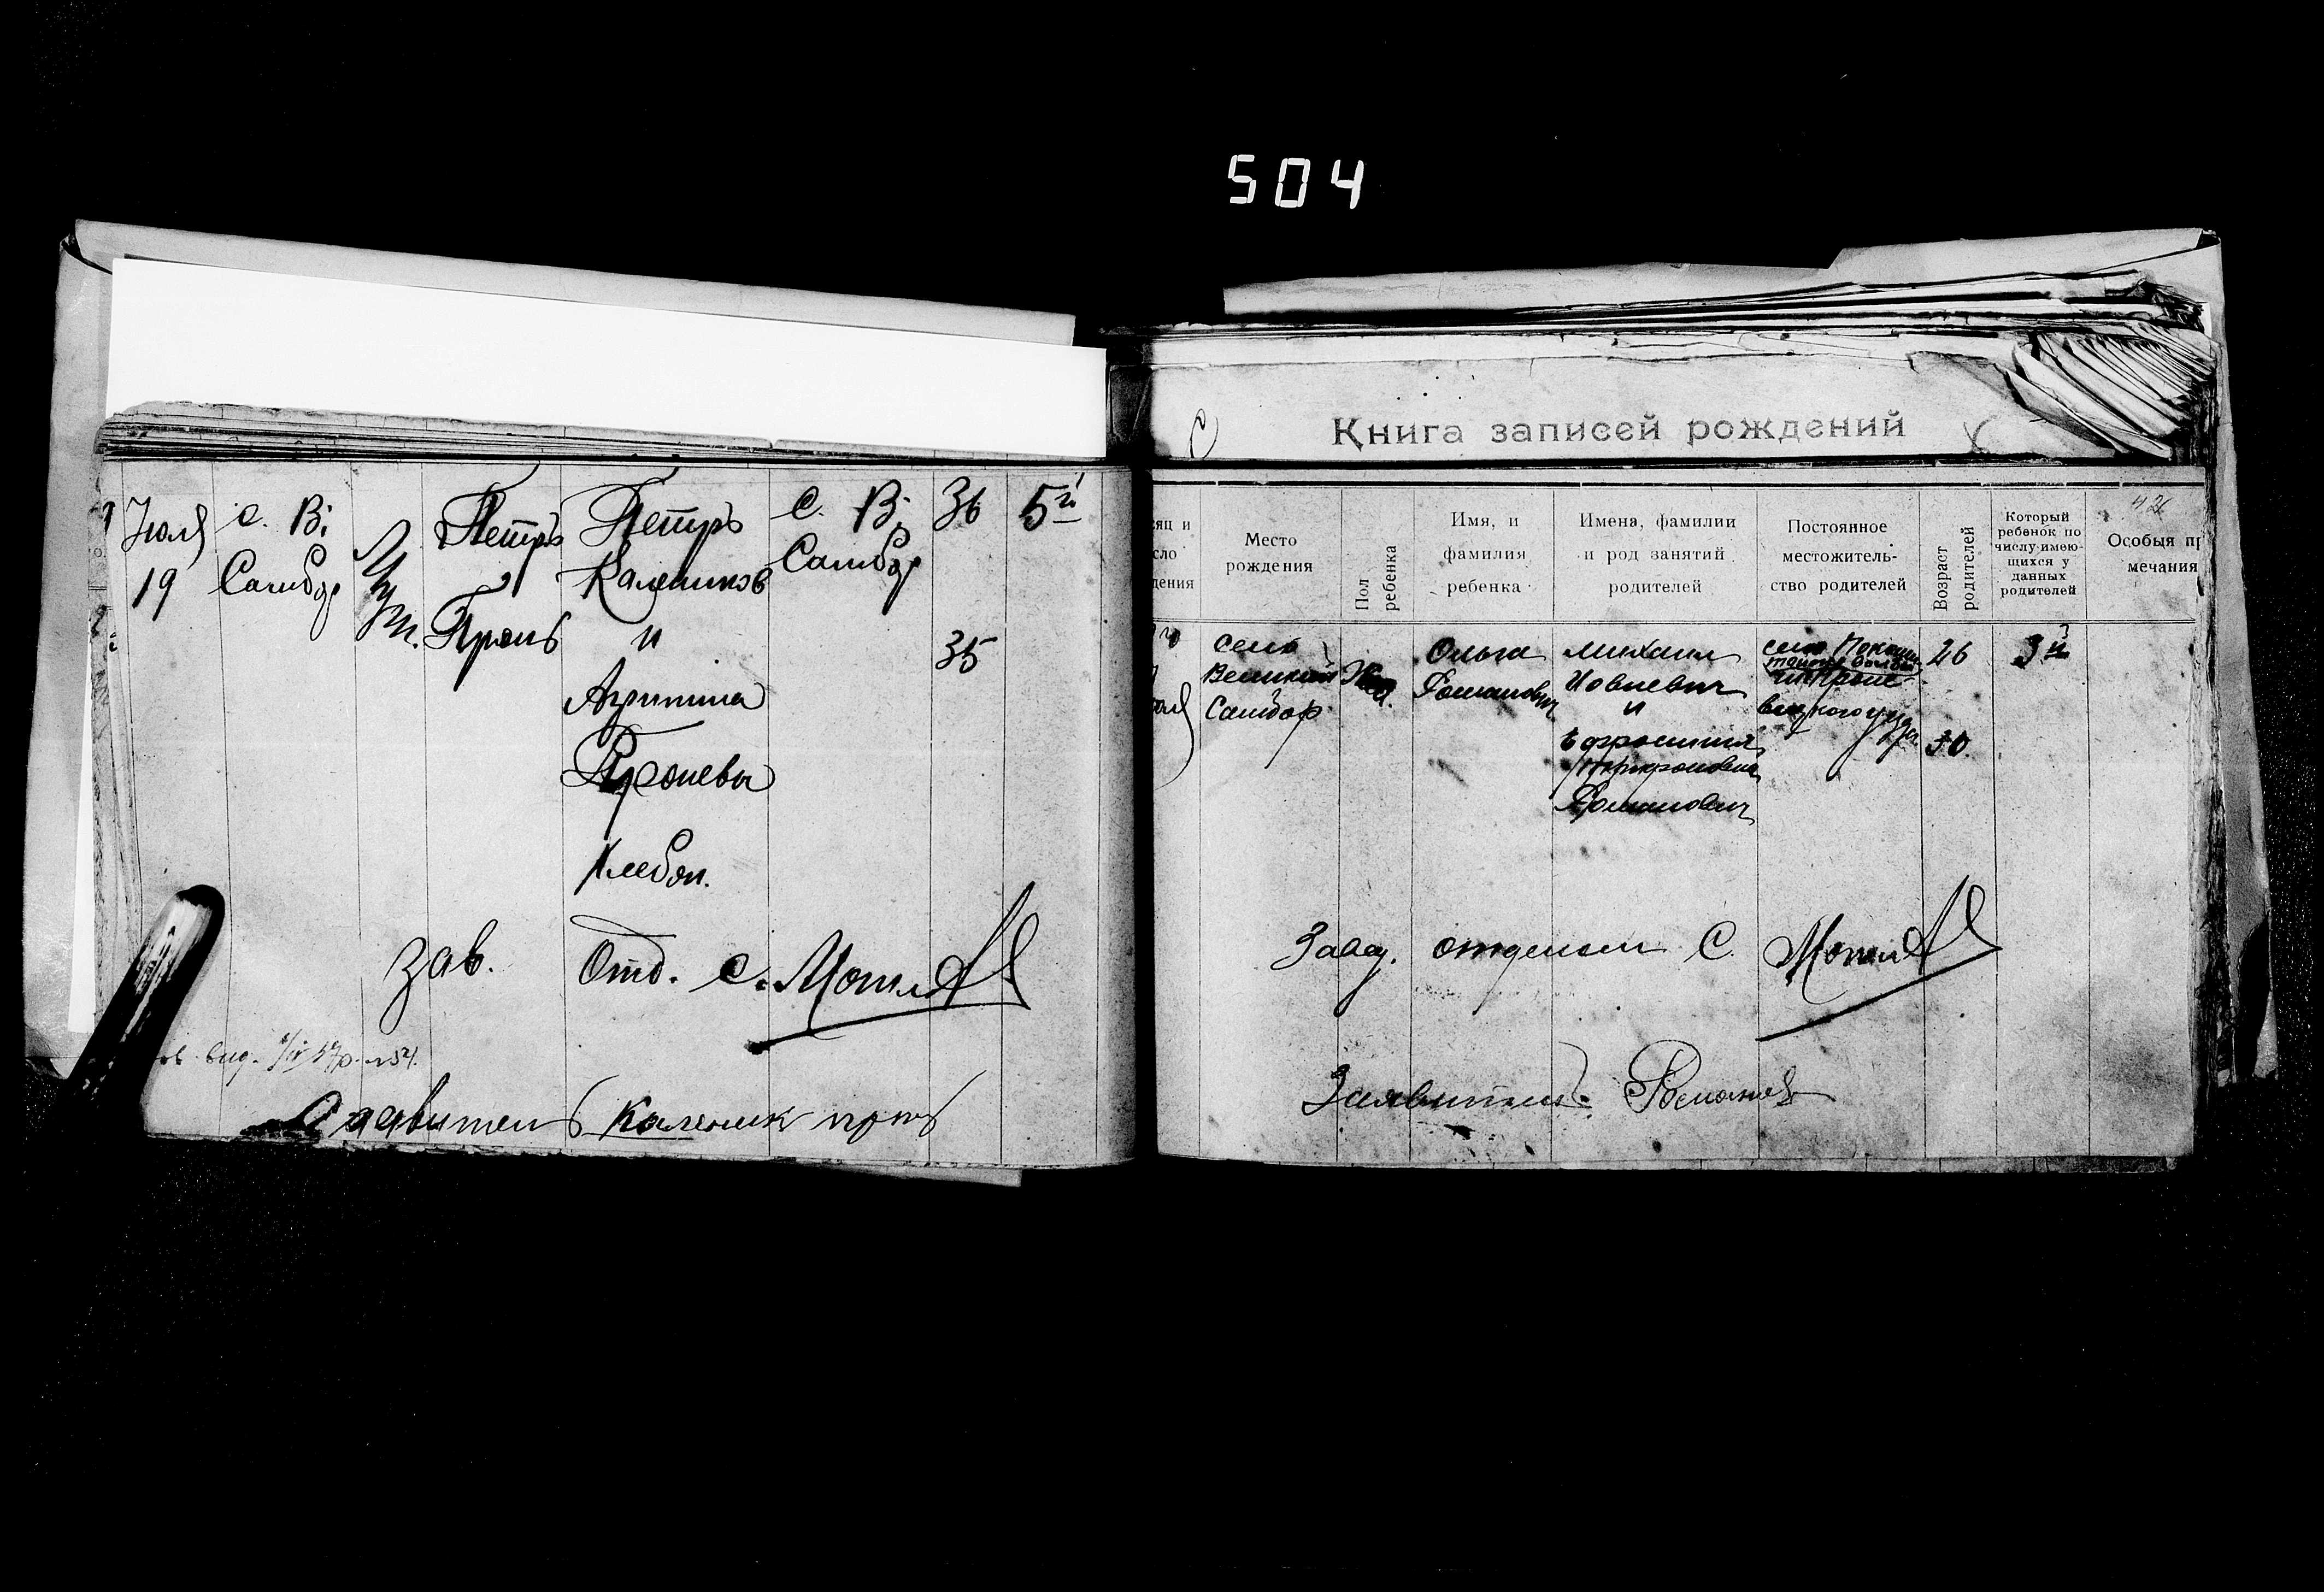 504
Июля
19
с. В;
Самбор
Петръ
Пронь
Петръ
Калеников
и
Агрипина
Проневы
Хлебоп.
с. В;
Самбор
36
35
5й
Зав. Отд. С.
Заявитель Каленик пронь
Книга записей рождений
Место
рождения
Пол
ребенка
Имя, и
фамилия
ребенка
Имена, фамилии
и род занятий
родителей
Постоянное
местожитель-
ство родителей
Возраст
родителей
Который
ребенок по
числу имею-
щихся у
данных
родителей
Особыя пр
мечания
село
Великий
Самбор
Жен.
Ольга
Романович
Михаил
Иовлевич
и
Ефросиния
Романович
село
26
30
3й
Завед. отделом С.
Заявитель